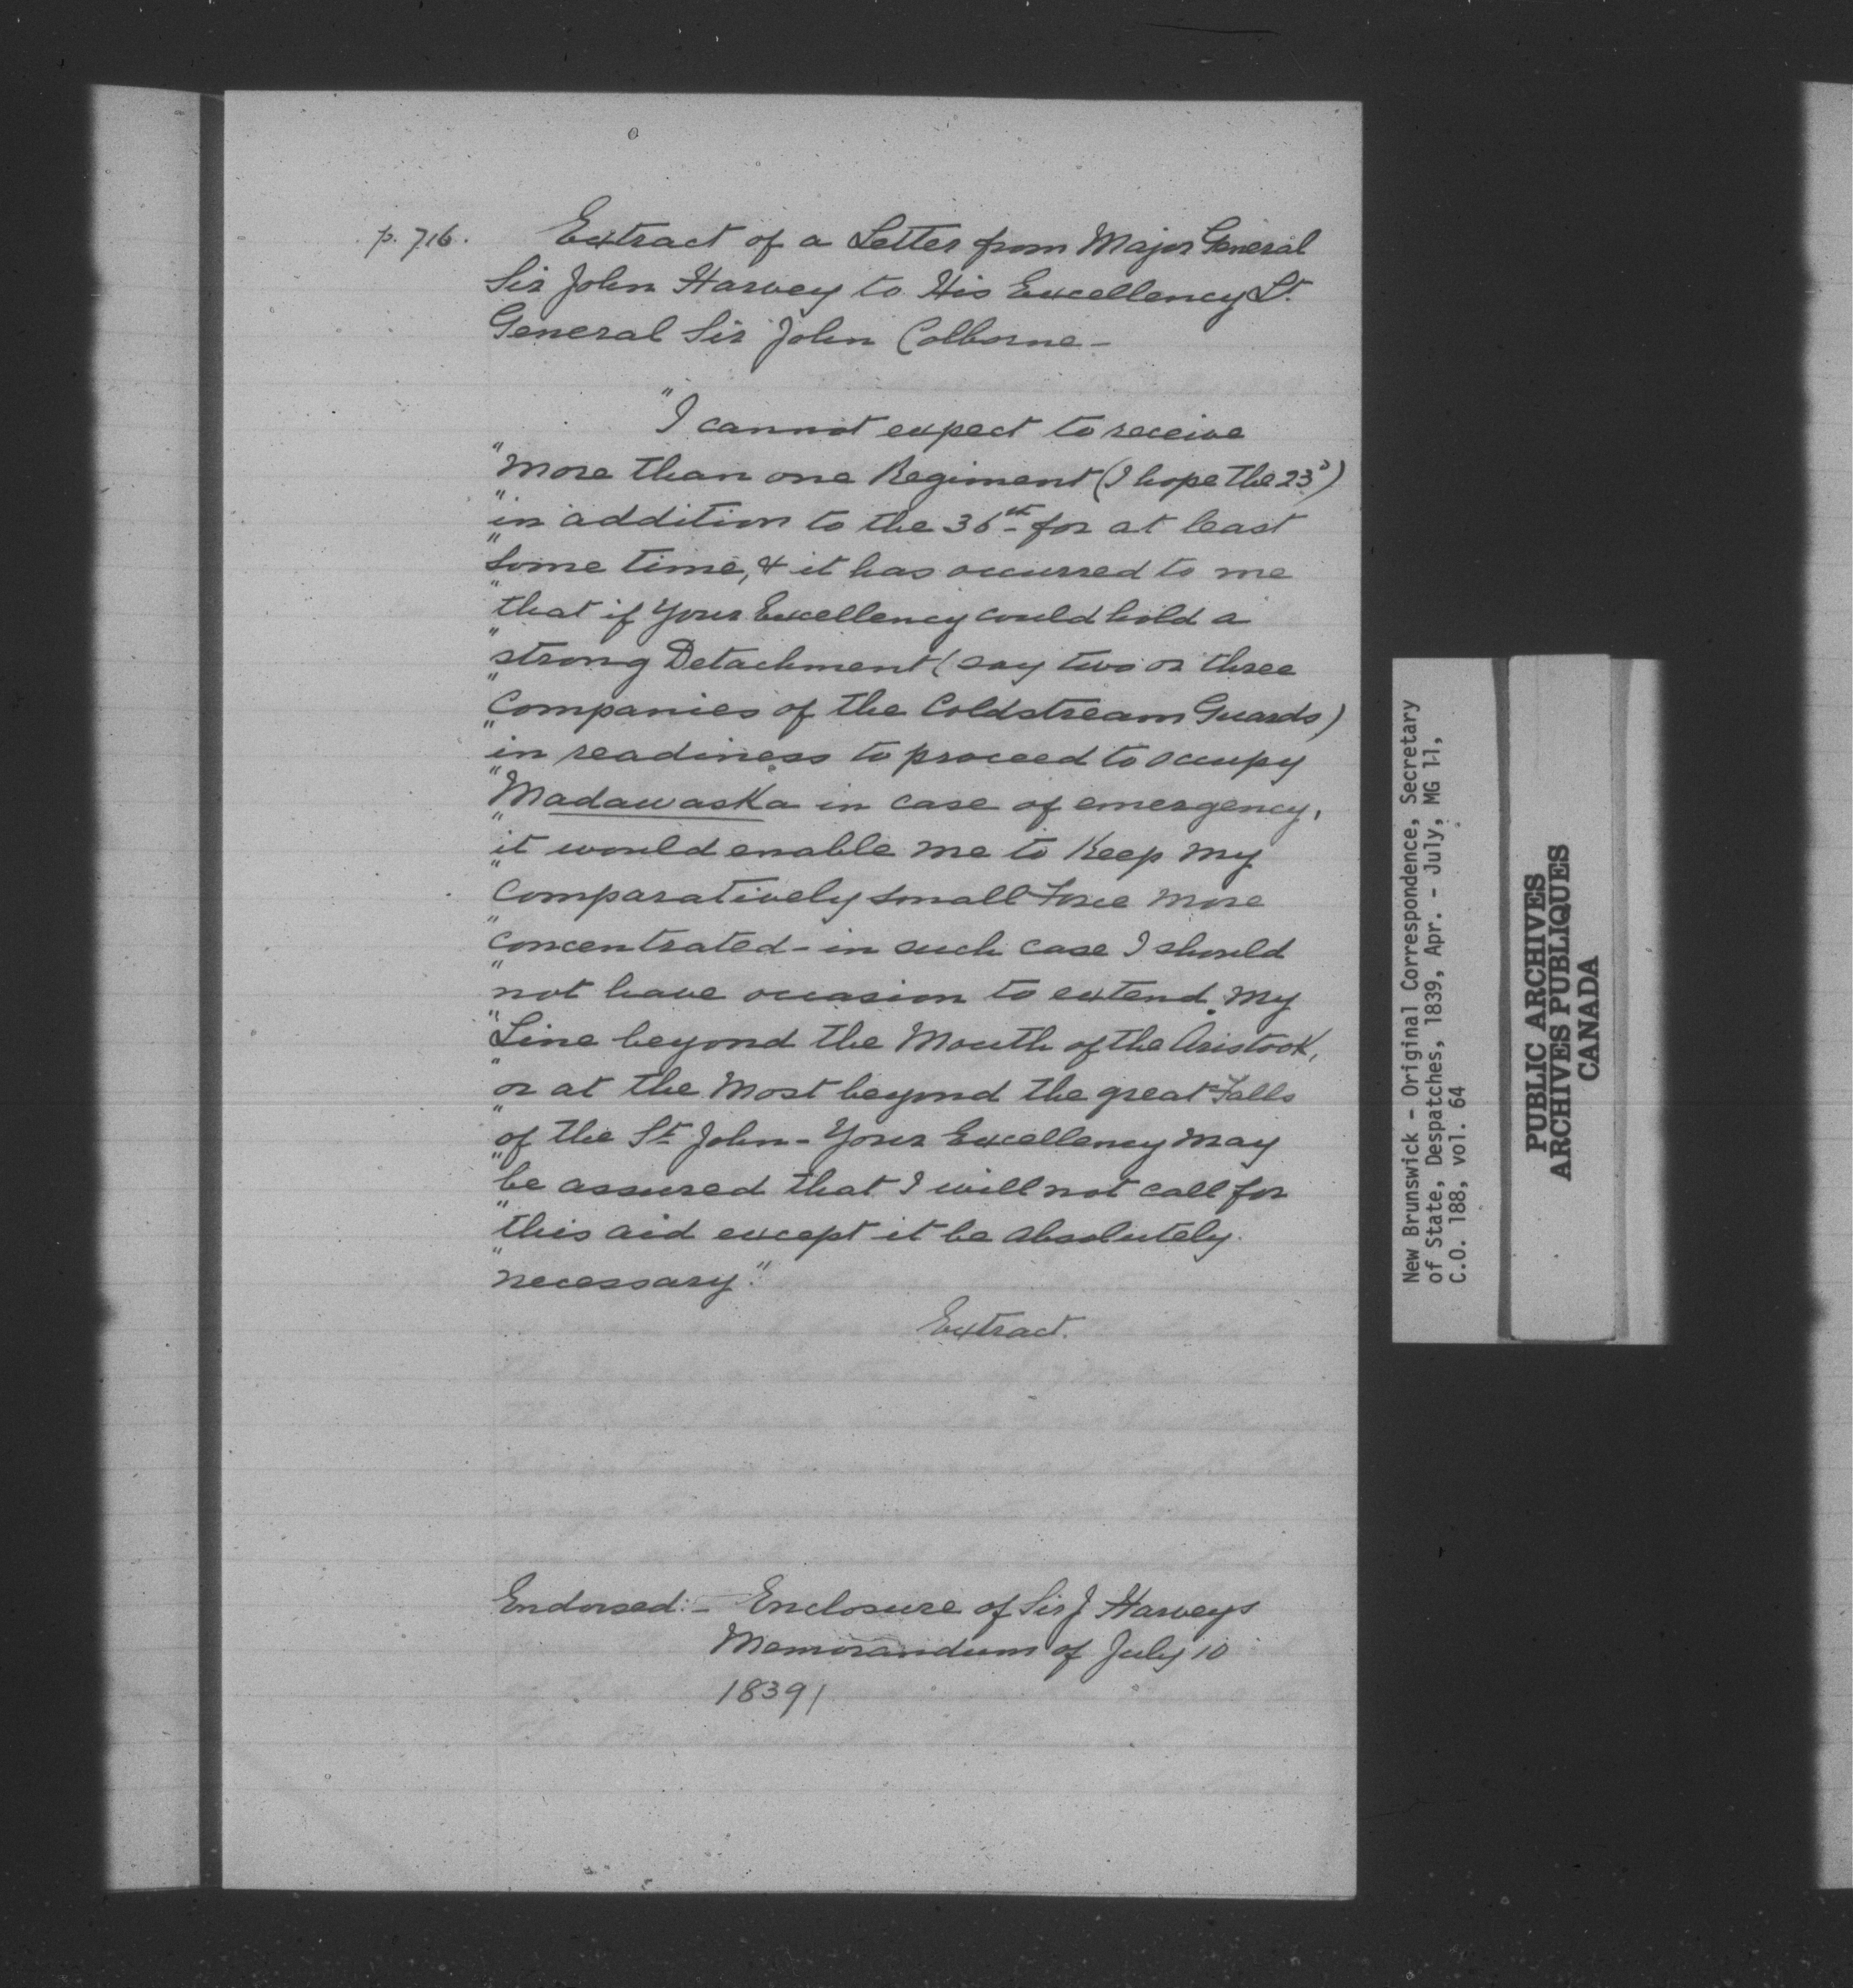 p. 716.
Extract of a Letter from Major General
Sir John Harvey to His Excellency Lt.
General Sir John Colborne -
"I cannot expect to receive
"more than one Regiment (I hope the 23d)
"in addition to the 36th for at least
"some time, & it has occurred to me
"that if Your Excellency could hold a
"strong Detachment (say two or three
"Companies of the Coldstream Guards)
"in readiness to proceed to occupy
"Madawaska in case of emergency,
"it would enable me to Keep my
"Comparatively small Force more
"concentrated - in such case I should
"not have occasion to extend my
"Line beyond the Mouth of the Aristook,
"or at the most beyond the great Falls
"of the St John - Your Excellency may
"be assured that I will not call for
"this aid except it be absolutely
"necessary."
Extract.
Endorsed: - Enclosure of Sir J Harveys
Memorandum of July 10
1839/
New Brunswick - Original Correspondence, Secretary
of State, Despatches, 1839, Apr. - July, MG 11,
C.O. 188, vol. 64
PUBLIC ARCHIVES
ARCHIVES PUBLIQUES
CANADA